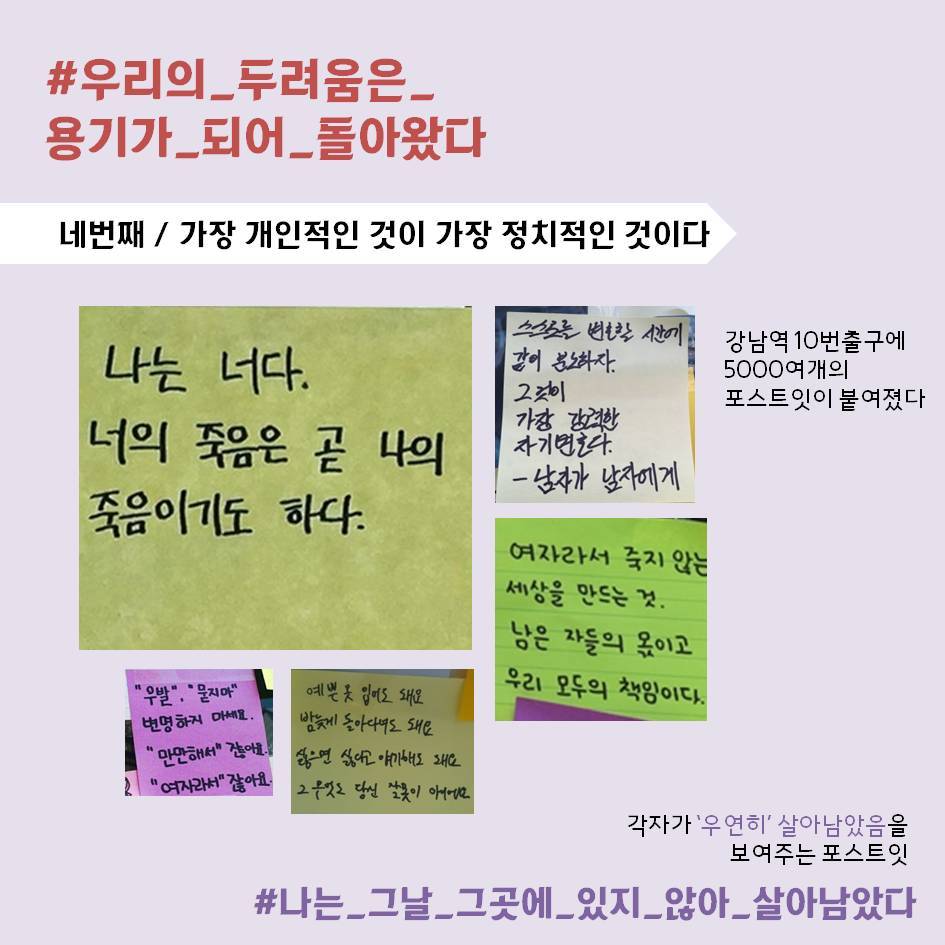 #우리의_두려움은_
용기가_되어_돌아왔다
네번째 / 가장 개인적인 것이 가장 정치적인 것이다
나는 너다.
너의 죽음은 곧 나의
죽음이기도 하다.
스스로를 변호할 시간에
같이 분노하자.
그것이
가장 강력한
자기변호다.
- 남자가 남자에게
강남역 10번출구에
5000여개의
포스트잇이 붙여졌다
여자라서 죽지 않는
세상을 만드는 것.
남은 자들의 몫이고
우리 모두의 책임이다.
"우발", "묻지마"
변명하지 마세요.
"만만해서" 잖아요.
"여자라서" 잖아요.
예쁜 옷 입어도 돼요
밤늦게 돌아다녀도 돼요
싫으면 싫다고 얘기해도 돼요
그 무엇도 당신 잘못이 아니에요
각자가 '우연히' 살아남았음을
보여주는 포스트잇
#나는_그날_그곳에_있지_않아_살아남았다